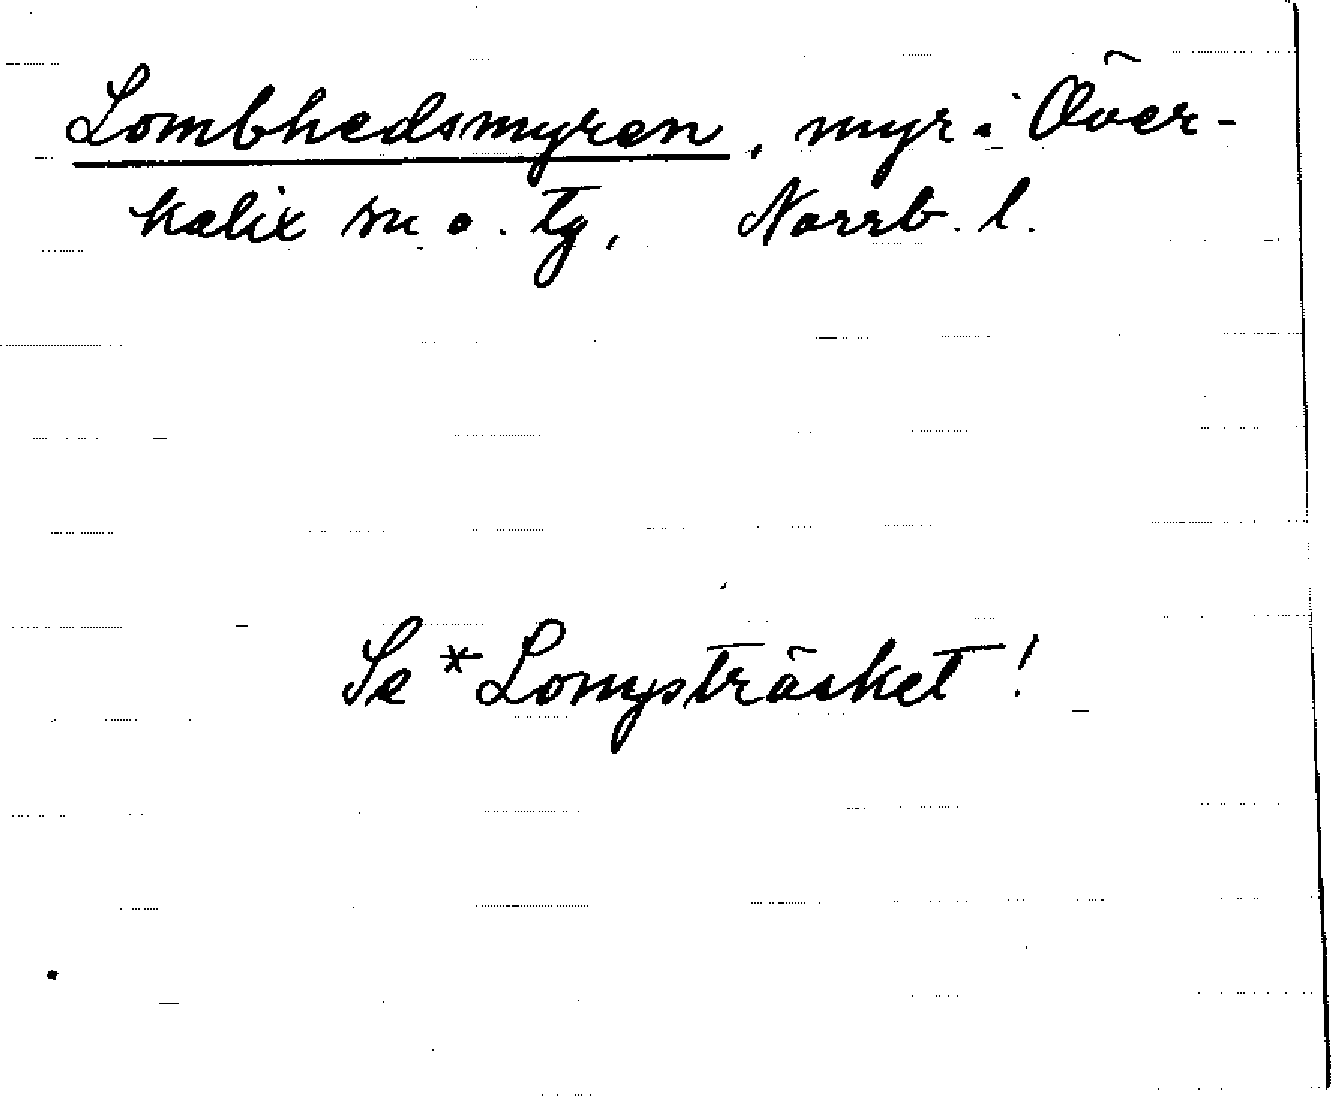 Lombhedsmyren, myr i Över-
kalix sn o. tg, Norrb. l.
Se *Lompsträsket!